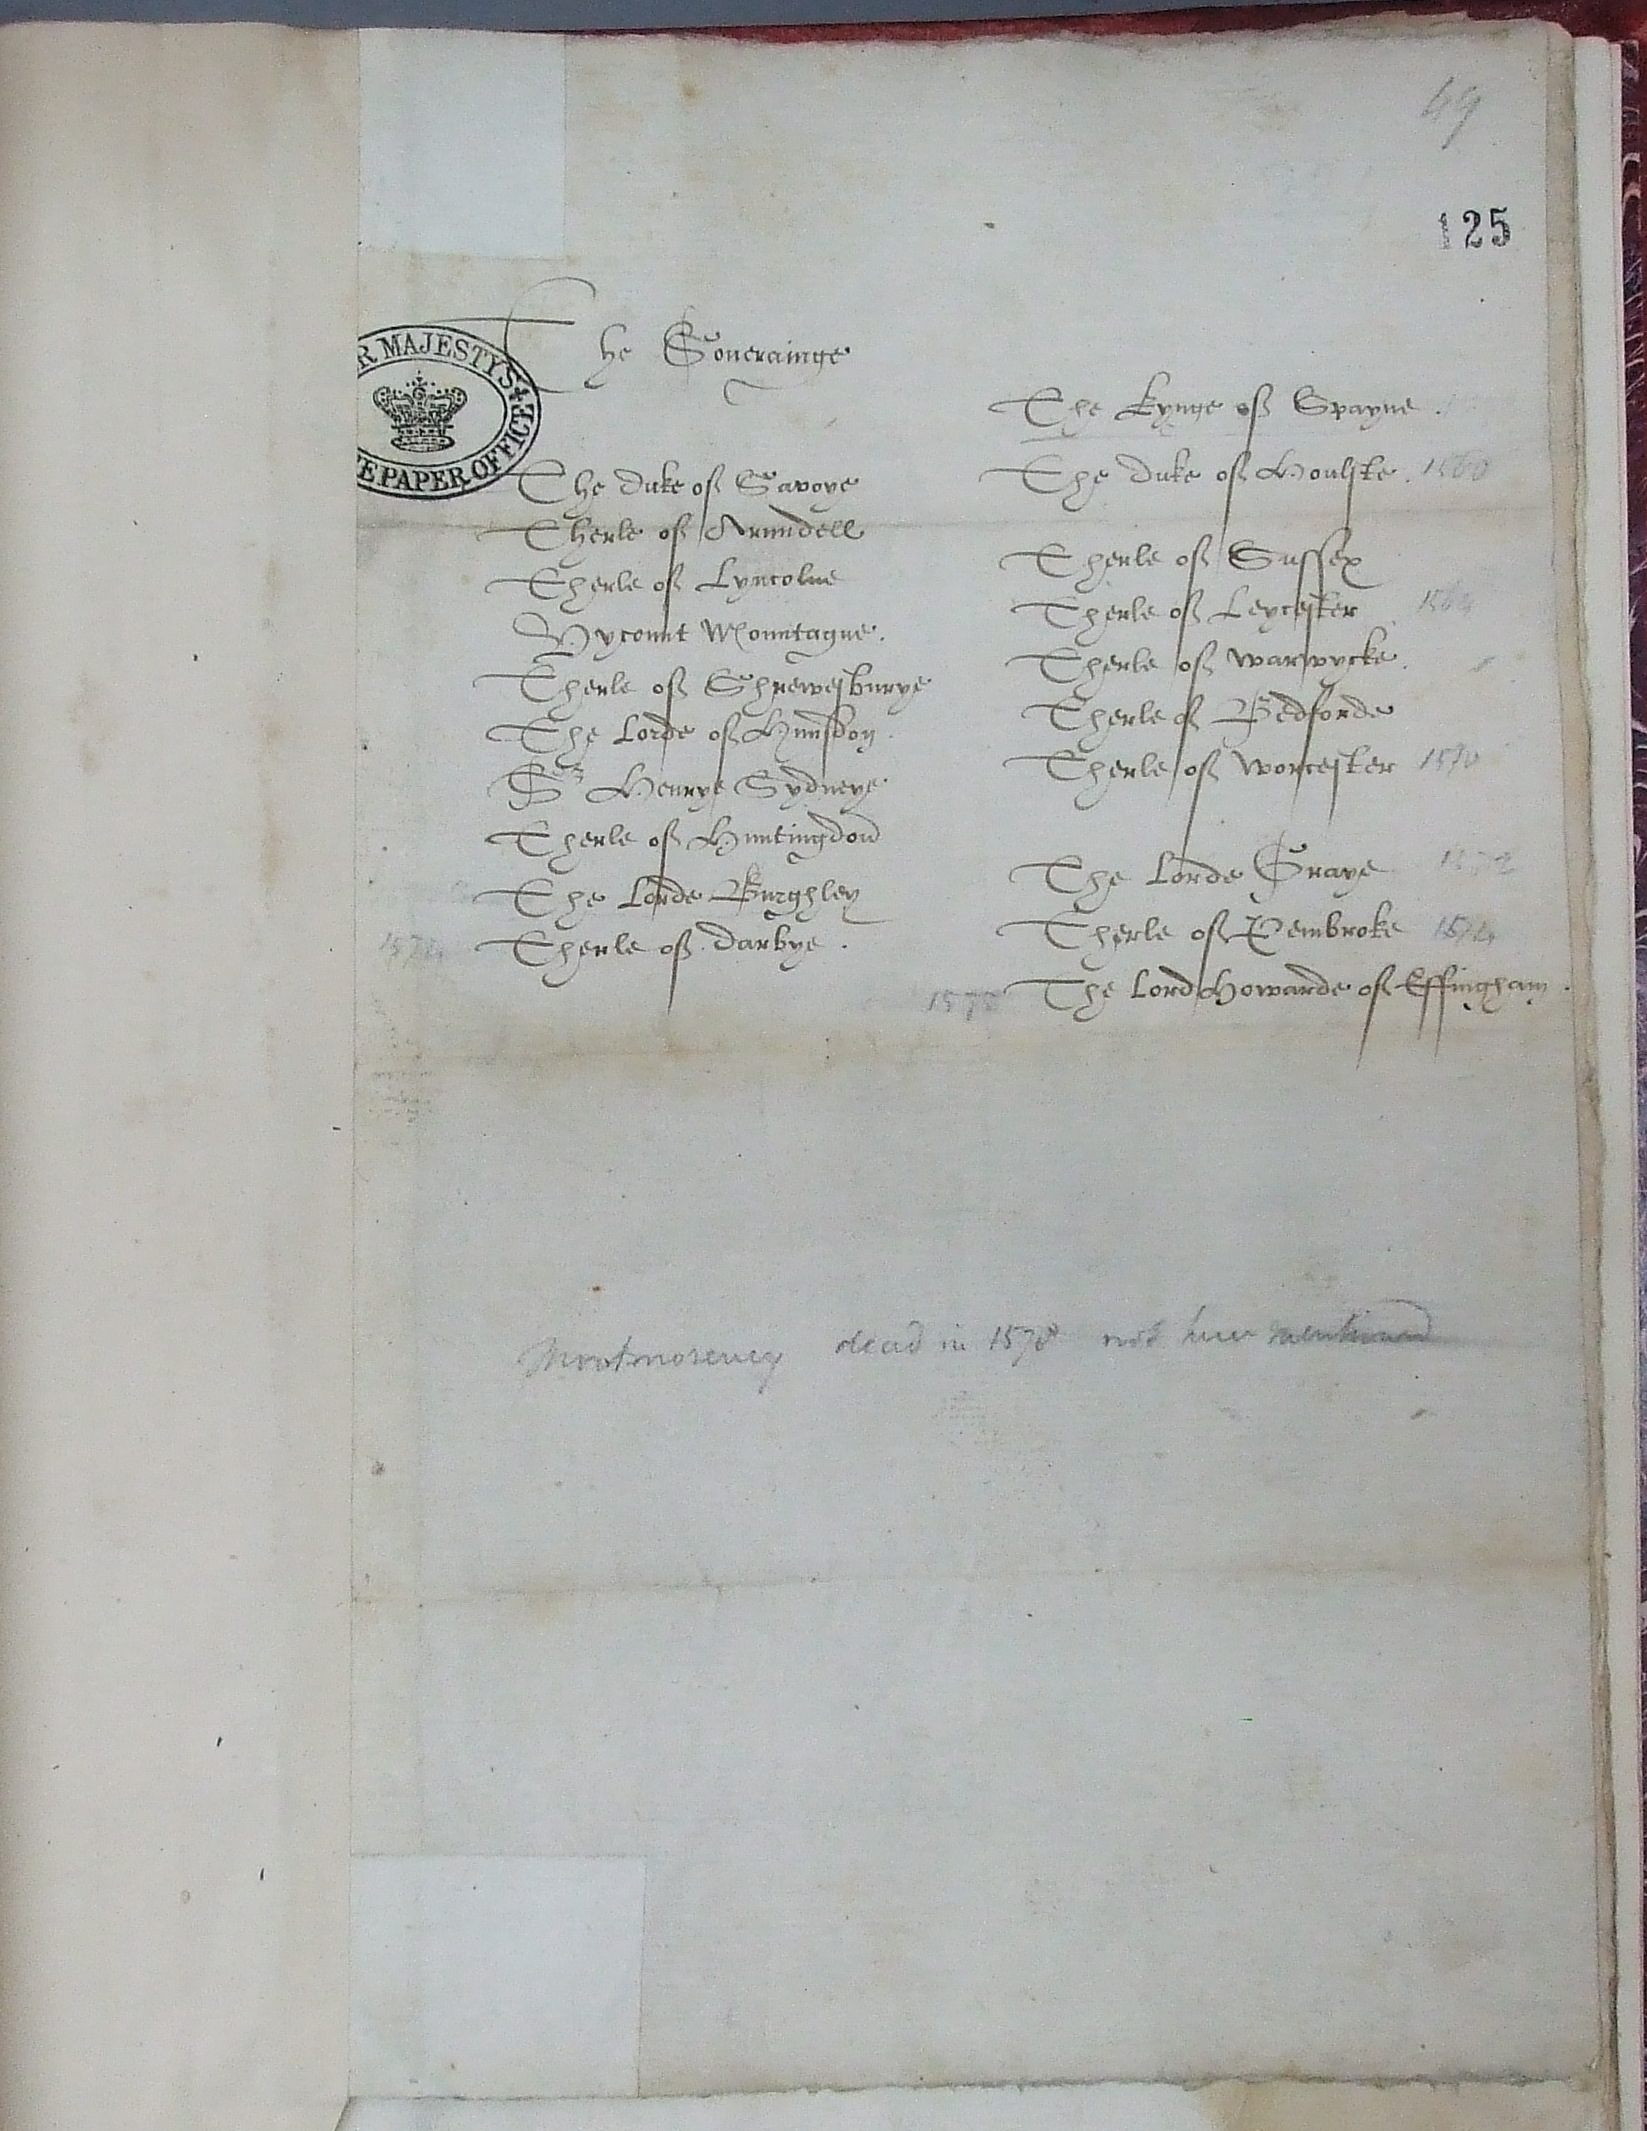 69
125
R MAJESTYS
E PAPER OFFICE
The Souerainge
The duke of Savoye
Therle of Arundell
Therle of Lyncolne
Vycount Mountague.
Therle of Shrewesburye
The Lorde of Hunsdon.
Sr Henrye Sydneye
Therle of Huntingdon
The Lorde Burghley
1574 Therle of darbye.
The Kynge of Spayne.
The duke of Houlste. 1560
Therle of Sussex
Therle of Leycester 1564
Therle of warwycke.
Therle of Bedforde
Therle of worcester 1570
The Lorde Graye 1572
Therle of Pembroke 1574
The Lord Howarde of Effingham.
Montmorency dead in 1578 not here mentioned